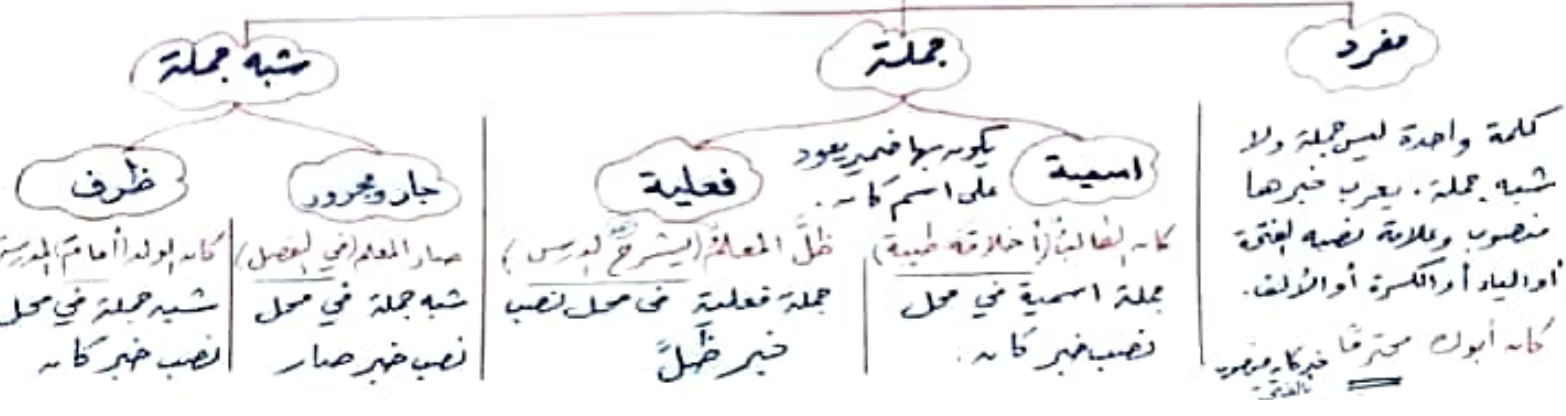 مفرد
كلمة واحدة ليس جملة ولا
شبه جملة. يعرب خبرها
منصوب وعلامة نصبه الفتحة
أو الياء أو الكسرة أو الألف.
كان أبوك محترمًا خبر كان منصوب
بالفتحة
جملة
اسمية
يكون بها ضمير يعود
على اسم كان.
كان الطالبُ (أخلاقه طيبة)
جملة اسمية في محل
نصب خبر كان.
فعلية
ظلَّ المعلمُ (يشرحُ الدرس)
جملة فعلية في محل نصب
خبر ظلَّ
شبه جملة
جار ومجرور
صار المعلم (في الفصل)
شبه جملة في محل
نصب خبر صار
ظرف
كان الولد (أمامَ المدرسة
شبه جملة في محل
نصب خبر كان